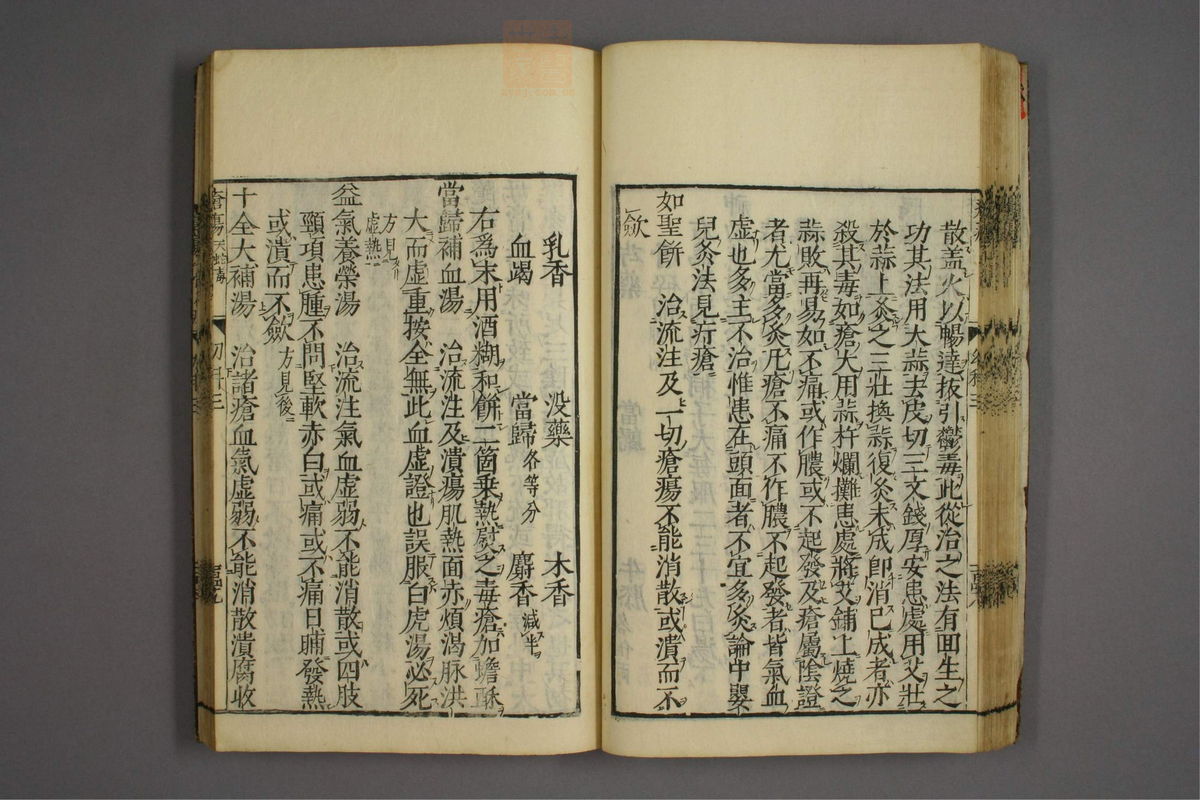 散盖火以暢達拔引鬱毒此從治之法有囬生之
功其法用大蒜去皮切三文錢厚安患處用艾壯
於蒜上灸之三壯換蒜復灸未成即消已成者亦
殺其毒如瘡大用蒜杵爛攤患處將艾鋪上燒之
蒜敗再易如不痛或作膿或不起發及瘡屬陰證
者尤當多灸凡瘡不痛不作膿不起發者皆氣血
虚也多主不治惟患在頭面者不宜多灸論中嬰
兒灸法見疔瘡
如聖餅 治流注及一切瘡瘍不能消散或潰而不
歛
乳香 没藥 木香
血竭 當歸各等分 麝香減半
右為末用酒糊和餅二箇乗熱熨之毒瘡加蟾酥
當歸補血湯 治流注及潰瘍肌熱面赤煩渴脉洪
大而虚重按全無此血虚證也誤服白虎湯必死
方見
虚熱
益氣養榮湯 治流注氣血虚弱不能消散或四肢
頸項患腫不問堅軟赤白或痛或不痛日晡發熱
或潰而不歛方見後
十全大補湯 治諸瘡血氣虚弱不能消散潰腐收